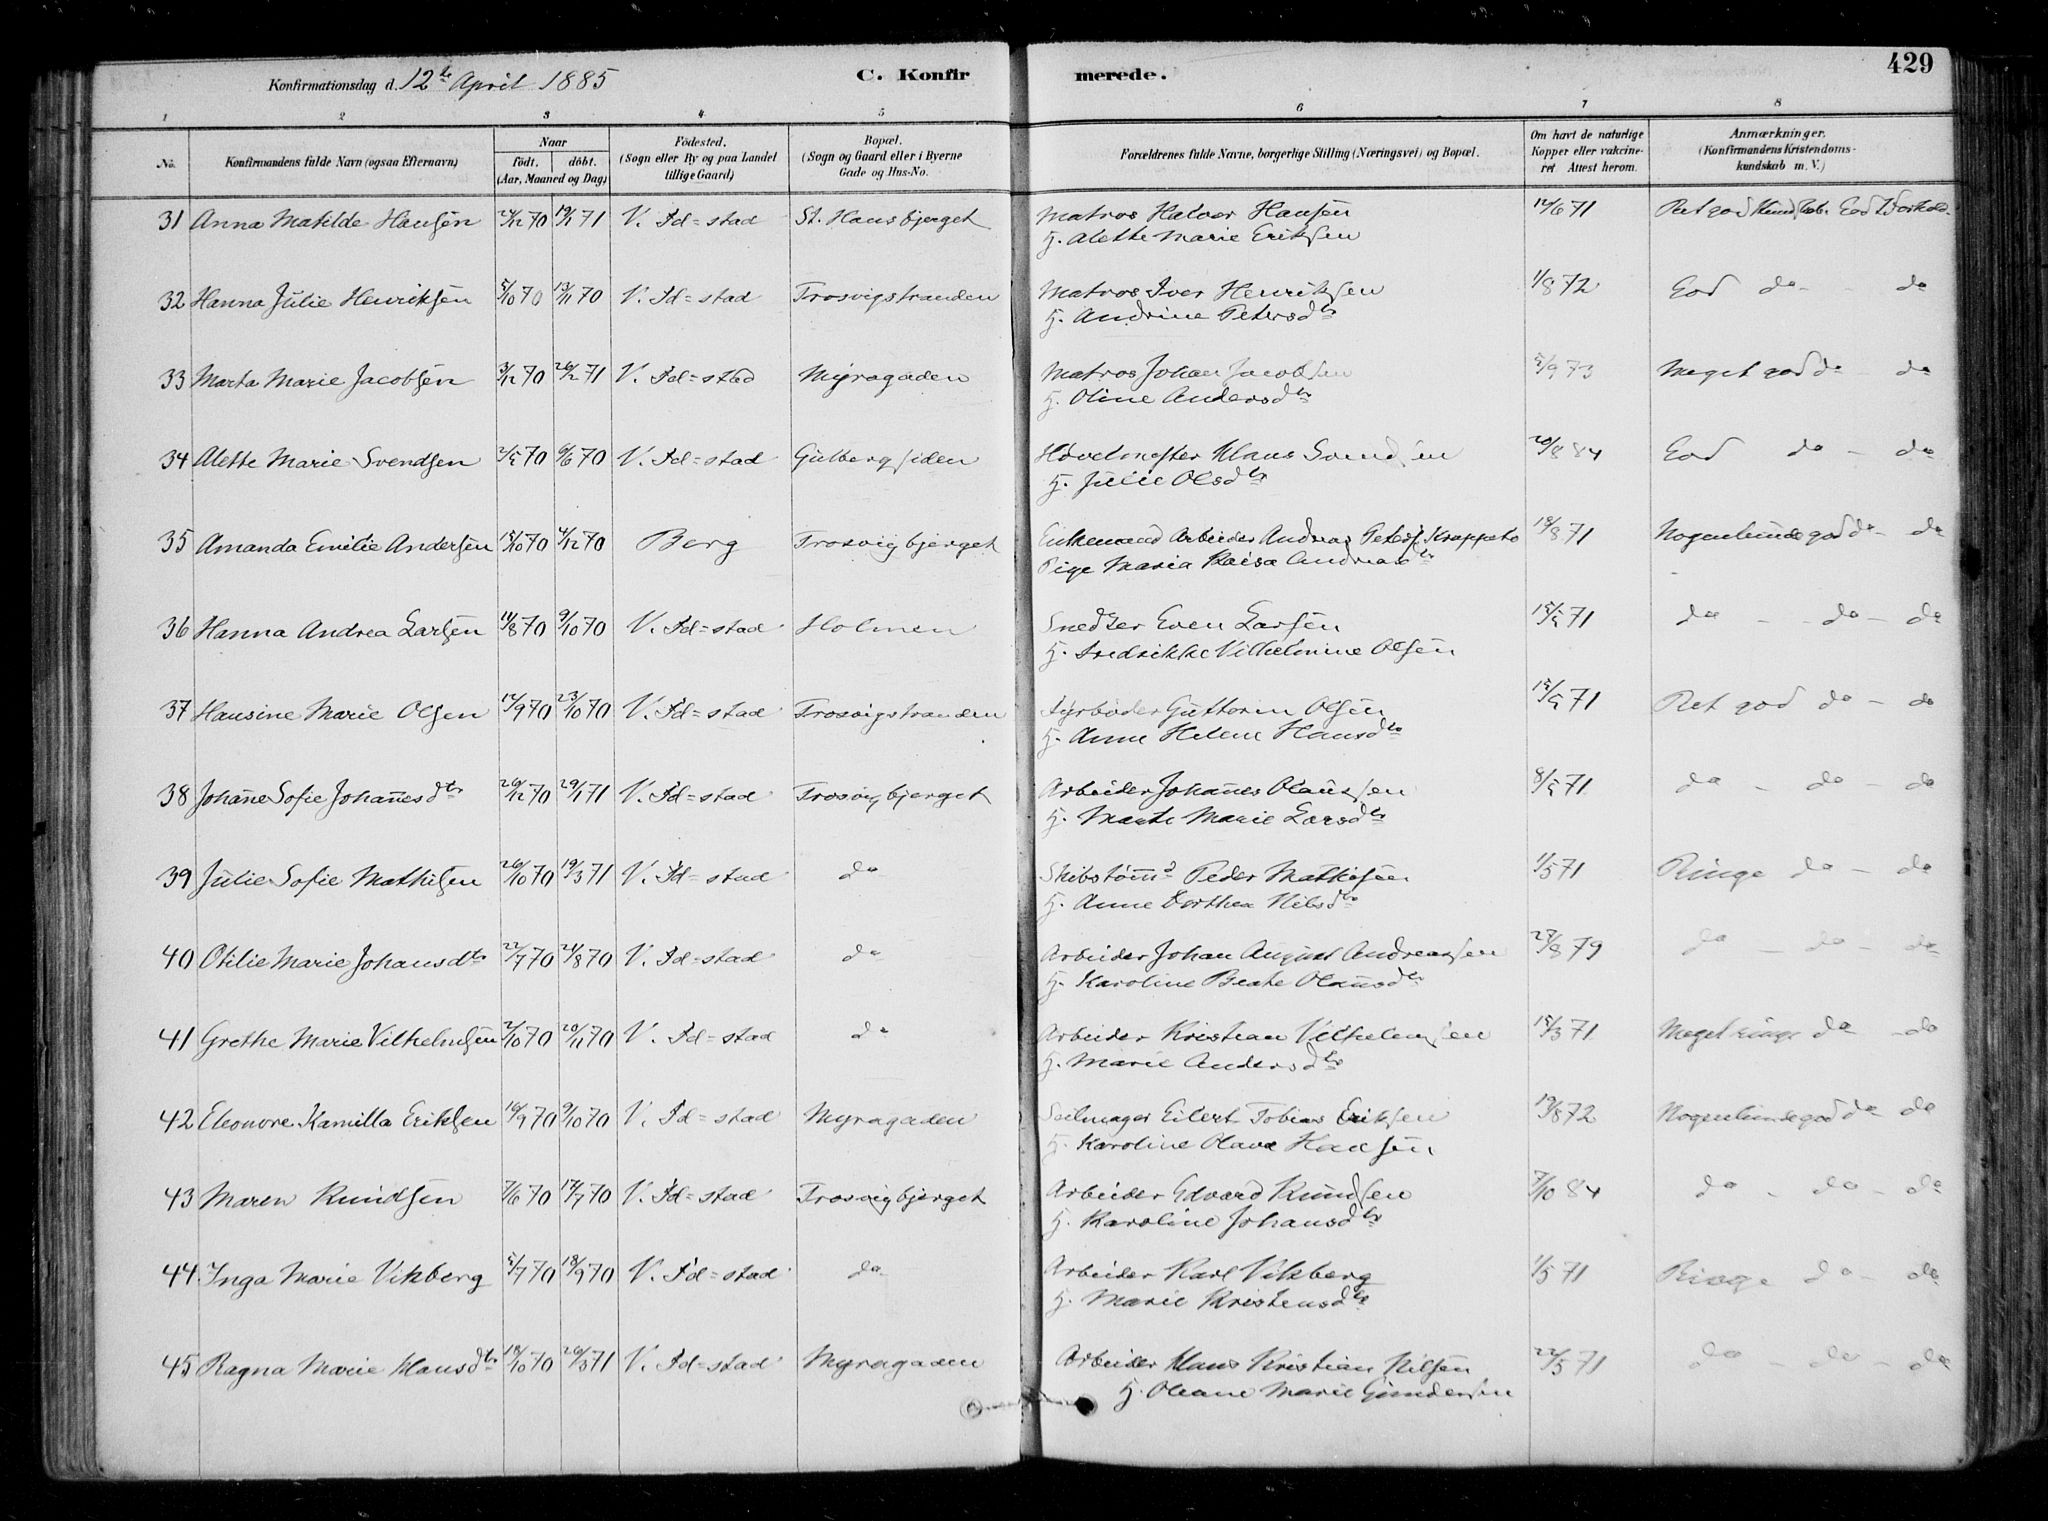 Konfirmationsdag d. 12te April 1885
C. Konfir merede.
429
1 2 3 4 5 6 7 8
No. Konfirmandens fulde Navn (ogsaa Efternavn) Naar födt. döbt. (Aar, Maaned og Dag) Födested. (Sogn eller By og paa Landet tillige Gaard) Bopæl. (Sogn og Gaard eller i Byerne Gade og Hus-No. Forældrenes fulde Navne, borgerlige Stilling (Næringsvei) og Bopæl. Om havt de naturlige Kopper eller vakcineret Attest herom. Anmærkninger. (Konfirmandens Kristendomskundskab m. V.)
31 Anna Matilde Hansen 70 19/1 71 V. Fd=stad St. Hansbjerget Matros Halvor Hansen 12/6 71 Ret god Kundskab. God Forhold.
H. Alette Marie Eriksen
32 Hanna Julie Henriksen 5/10 70 13/11 70 V. Fd=stad Trosvigstranden Matros Iver Henriksen 1/8 72 God do - do
H. Andrine Petersdtr
33 Marta Marie Jacobsen 3/12 70 26/2 71 V. Fd=stad Myragaden Matros Johan Jacobsen 5/9 73 Meget god do - do
H. Oline Andersdtr
34 Alette Marie Svendsen 2/5 70 6/6 70 V. Fd=stad Gulbergsiden Høvelmester Klaus Svendsen 20/8 84 God do - do
H. Julie Olsdtr
35 Amanda Emilie Andersen 15/10 70 4/12 70 Berg Trosvigbjerget Enkemand Arbeider Andreas Peders. Krappeto 18/8 71 Nogenlunde god do - do
Pige Maria Kaisa Andreasdtr
36 Hanna Andrea Larsen 11/8 70 9/10 70 V. Fd=stad Holmen Snedker Even Larsen 15/5 71 do - do - do
H. Fredrikke Vilhelmine Olsen
37 Hansine Marie Olsen 12/9 70 23/10 70 V. Fd=stad Trosvigstranden Fyrbøder Guttorm Olsen 15/5 71 Ret god do - do
H. Anne Helene Hansdtr
38 Johanne Sofie Johannesdtr 26/12 70 29/1 71 V. Fd=stad Trosvigbjerget Arbeider Johannes Olaussen 8/5 71 do - do - do
H. Marte Marie Larsdtr
39 Julie Sofie Mathisen 26/10 70 19/3 71 V. Fd=stad do Skibstømmd Peder Mathisen 1/5 71 Ringe do - do
H. Anne Dorthea Nilsdtr
40 Otilie Marie Johansdtr 22/7 70 21/8 70 V. Fd=stad do Arbeider Johan August Andreassen 27/8 79 do - do - do
H. Karoline Beate Olausdtr
41 Grethe Marie Vilhelmsen 2/10 70 20/11 70 V. Fd=stad do Arbeider Kristian Vilhelmsen 15/3 71 Meget ringe do - do
H. Marie Andersdtr
42 Eleonore Kamilla Eriksen 16/9 70 9/10 70 V. Fd=stad Myragaden Seilmager Eilert Tobias Eriksen 19/8 72 Nogenlunde god do - do
H. Karoline Olava Hansen
43 Maren Knudsen 7/6 70 17/7 70 V. Fd=stad Trosvigbjerget Arbeider Edvard Knudsen 7/10 84 do - do - do
H. Karoline Johansdtr
44 Inga Marie Vikberg 5/7 70 18/9 70 V. Fd=stad do Arbeider Karl Vikberg 1/5 71 Ringe do - do
H. Marie Kristensdtr
45 Ragna Marie Klausdtr 18/10 70 26/3 71 V. Fd=stad Myragaden Arbeider Klaus Kristian Nilsen 22/5 71 do - do - do
H. Oleane Marie Gundersen